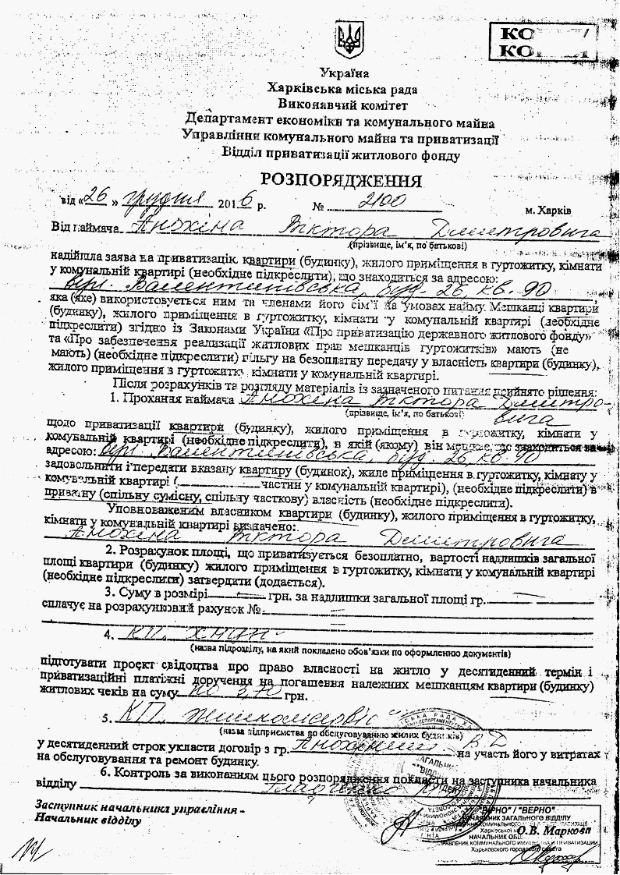 КО
КО
Україна
Харківська міська рада
Виконавчий комітет
Департамент економіки та комунального майна
Управління комунального майна та приватизації
Відділ приватизації житлового фонду
РОЗПОРЯДЖЕННЯ
від «26» грудня 2016 р. № 2100 м. Харків
Від наймача Анохіна Віктора Дмитровича
(прізвище, ім'я, по батькові)
надійшла заява на приватизацію квартири (будинку), жилого приміщення в гуртожитку, кімнати
у комунальній квартирі (необхідне підкреслити), що знаходиться за адресою:
вул. Валентинівська, буд. 26, кв. 90,
яка (яке) використовується ним та членами його сім'ї на умовах найму. Мешканці квартири
(будинку), жилого приміщення в гуртожитку, кімнати у комунальній квартирі (необхідне
підкреслити) згідно із Законами України «Про приватизацію державного житлового фонду»
та «Про забезпечення реалізації житлових прав мешканців гуртожитків» мають (не
мають) (необхідне підкреслити) пільгу на безоплатну передачу у власність квартири (будинку),
жилого приміщення в гуртожитку, кімнати у комунальній квартирі.
Після розрахунків та розгляду матеріалів із зазначеного питання прийнято рішення:
1. Прохання наймача Анохіна Віктора Дмитро-
(прізвище, ім'я, по батькові)
вича
щодо приватизації квартири (будинку), жилого приміщення в гуртожитку, кімнати у
комунальній квартирі (необхідне підкреслити), в якій (якому) він мешкає, що знаходиться за
адресою: вул. Валентинівська, буд. 26, кв. 90
задовольнити і передати вказану квартиру (будинок), жиле приміщення в гуртожитку, кімнату у
комунальній квартирі ( частин у комунальній квартирі), (необхідне підкреслити) в
приватну (спільну сумісну, спільну часткову) власність (необхідне підкреслити).
Уповноваженим власником квартири (будинку), жилого приміщення в гуртожитку,
кімнати у комунальній квартирі визначено:
Анохіна Віктора Дмитровича
2. Розрахунок площі, що приватизується безоплатно, вартості надлишків загальної
площі квартири (будинку) жилого приміщення в гуртожитку, кімнати у комунальній квартирі
(необхідне підкреслити) затвердити (додається).
3. Суму в розмірі грн. за надлишки загальної площі гр.
сплачує на розрахунковий рахунок №
4.
(назва підрозділу, на який покладено обов'язки по оформленню документів)
підготувати проєкт свідоцтва про право власності на житло у десятиденний термін і
приватизаційні платіжні доручення на погашення належних мешканцям квартири (будинку)
житлових чеків на суму грн.
5. КП "Жилкомсервіс"
(назва підприємства по обслуговуванню жилих будинків)
у десятиденний строк укласти договір з гр. Анохіним В.Д. на участь його у витратах
на обслуговування та ремонт будинку.
6. Контроль за виконанням цього розпорядження покласти на заступника начальника
відділу
Заступник начальника управління -
Начальник відділу
"ВІРНО" / "ВЕРНО"
НАЧАЛЬНИК ЗАГАЛЬНОГО ВІДДІЛУ
О.В. Маркова